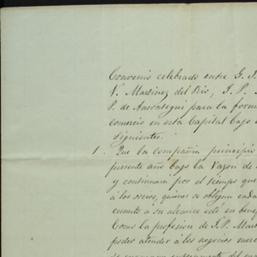 Convenio celebrado entre G. J.
V. Martinez del Rio, J. P. M
P. de Ansoategui para la form
comercio en esta Capital bajo
siguientes.
1. Que la compañia principie
presente año bajo la razon de
y continuará por el tiempo que
á los socios, quienes se obligan cada
cuanto a su alcance esté en bene
Como la profesion de J. P. Mar
poder atender á los negocios mer